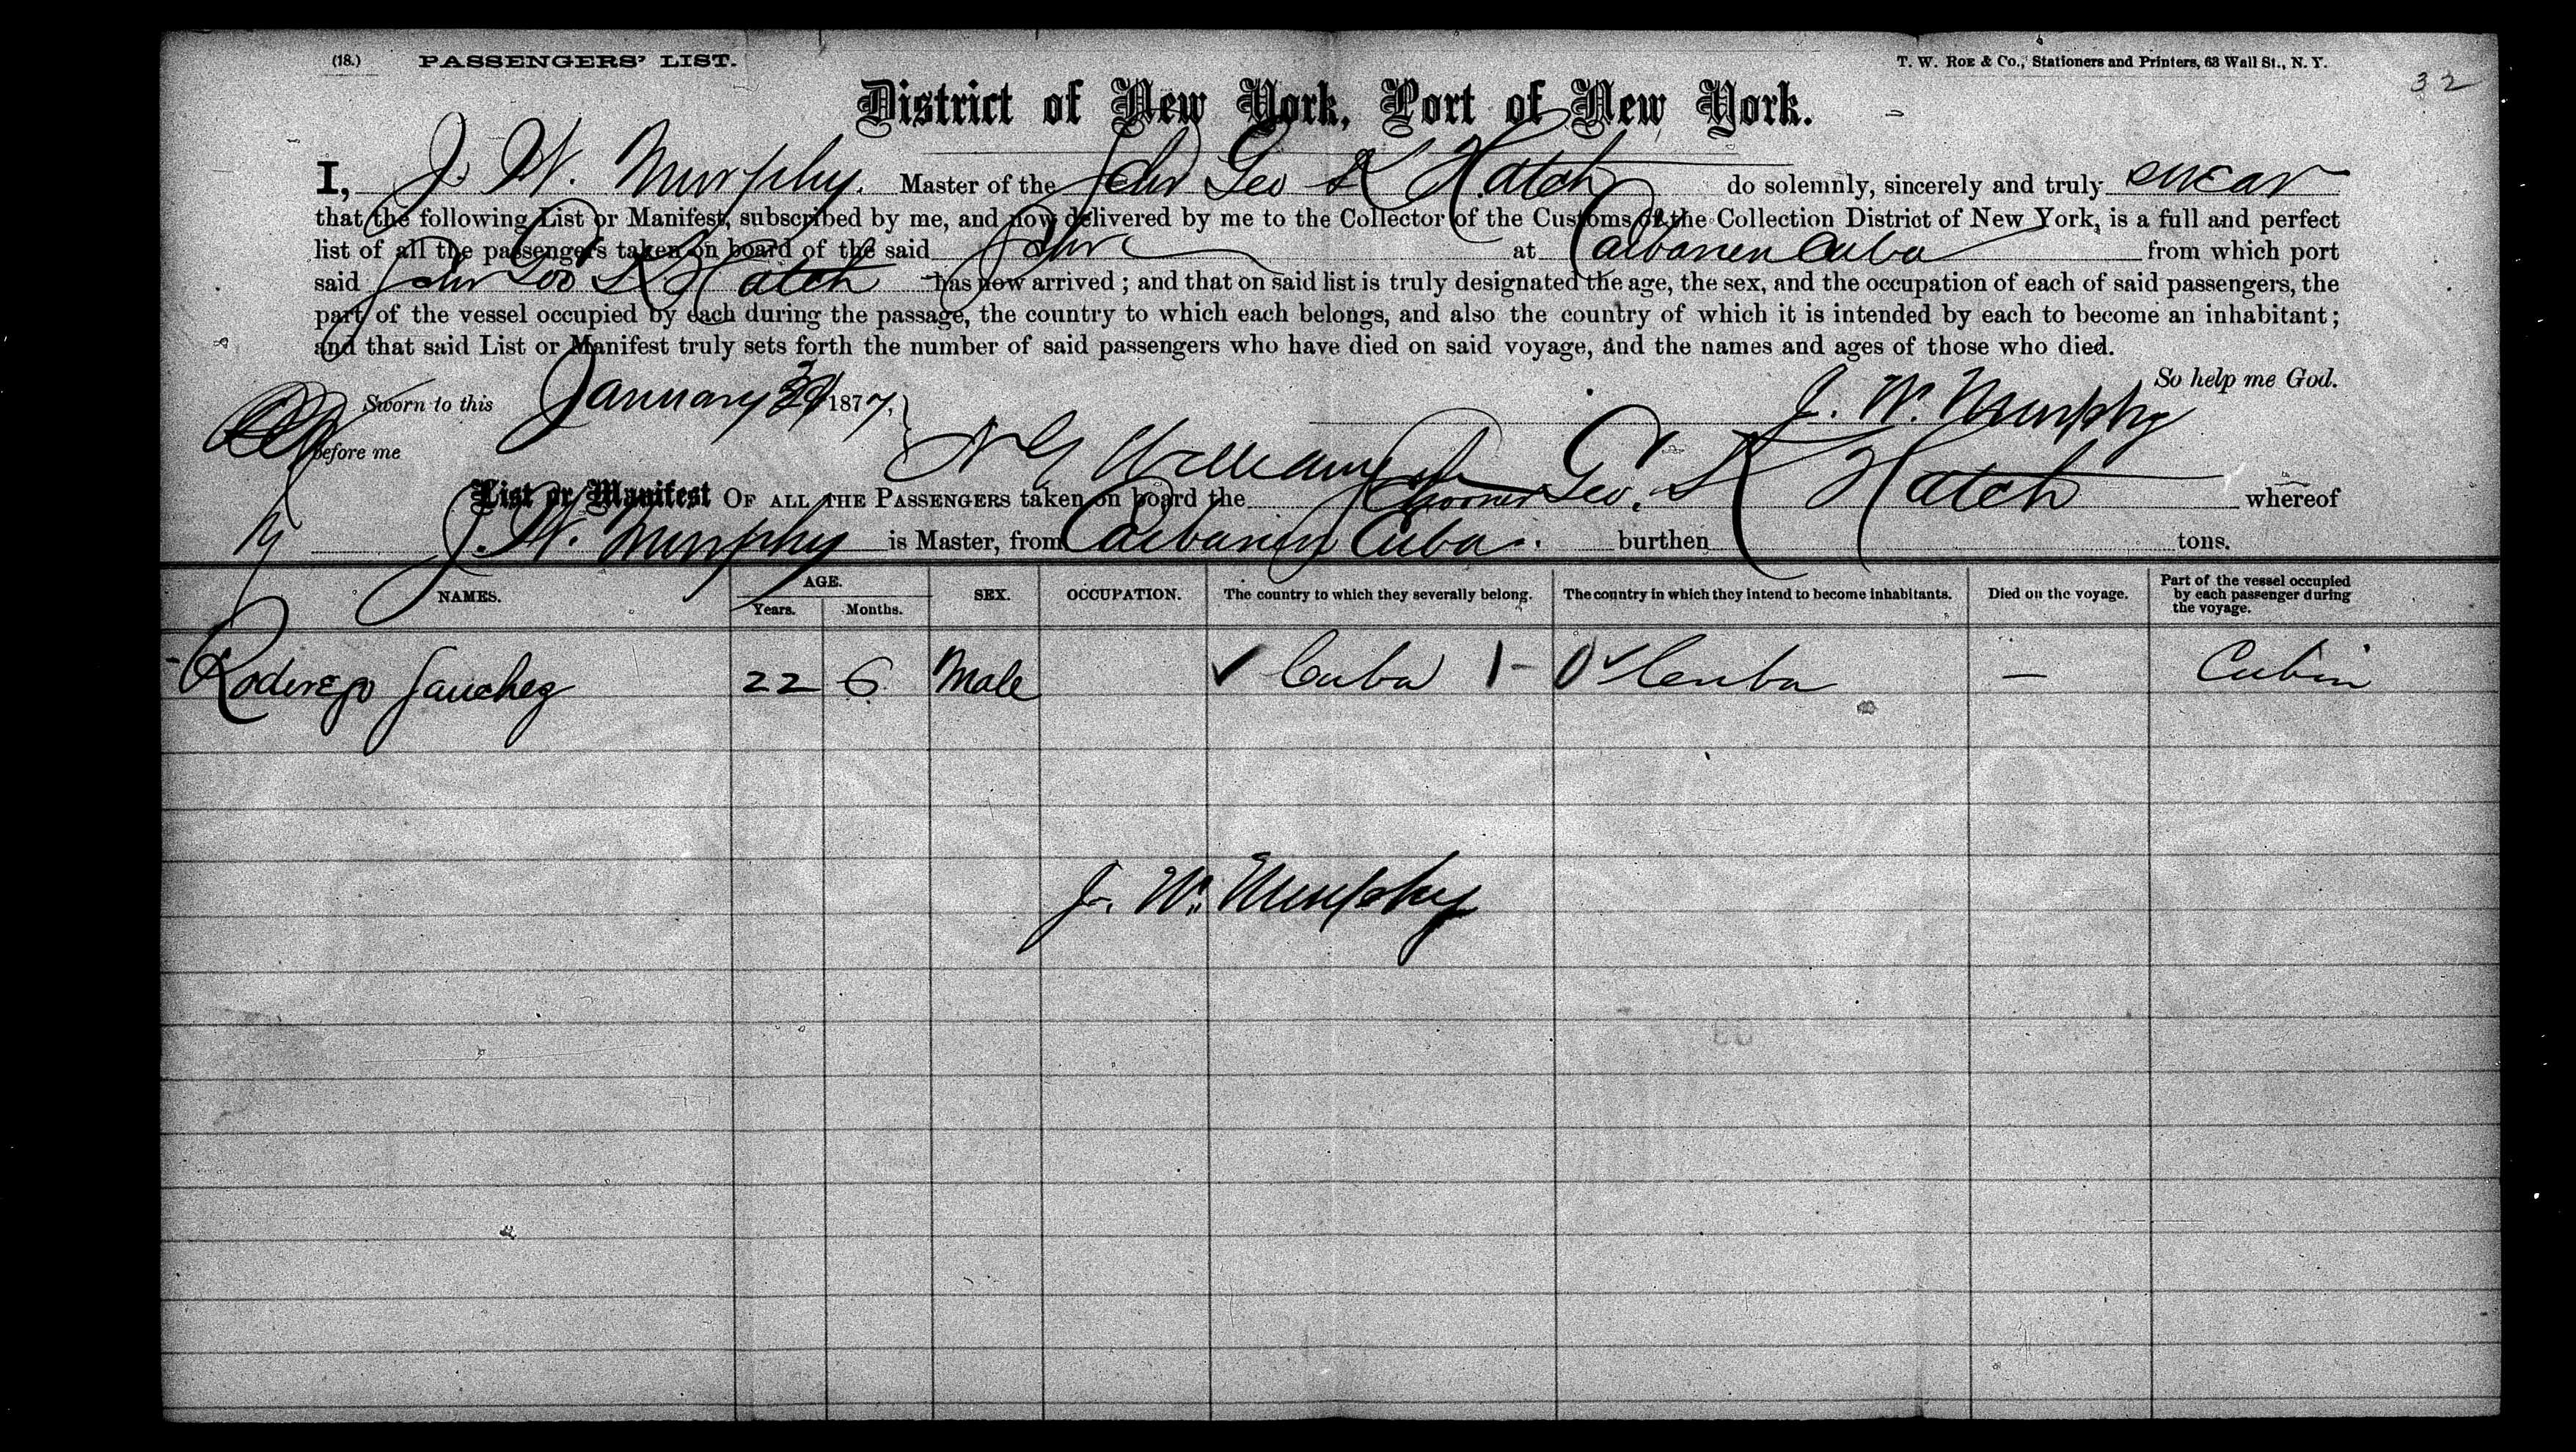 (18.) PASSENGERS' LIST.
T. W. Roe & Co., Stationers and Printers, 63 Wall St., N. Y.
32
District of New York, Port of New York.
I, J. W. Murphy. Master of the Schr Geo K Hatch do solemnly, sincerely and truly swear
that the following List or Manifest, subscribed by me, and now delivered by me to the Collector of the Customs of the Collection District of New York, is a full and perfect
list of all the passengers taken on board of the said Schr at Caibarien Cuba from which port
said Schr Geo K Hatch has now arrived; and that on said list is truly designated the age, the sex, and the occupation of each of said passengers, the
part of the vessel occupied by each during the passage, the country to which each belongs, and also the country of which it is intended by each to become an inhabitant;
and that said List or Manifest truly sets forth the number of said passengers who have died on said voyage, and the names and ages of those who died.
So help me God.
Sworn to this January 1877, J. W. Murphy
Before me N G Williams
List or Manifest OF ALL THE PASSENGERS taken on board the Schooner Geo. K Hatch whereof
J. W. Murphy is Master, from Caibarien Cuba. burthen tons.
NAMES. AGE. Years. Months. SEX. OCCUPATION. The country to which they severally belong. The country in which they intend to become inhabitants. Died on the voyage. Part of the vessel occupied by each passenger during the voyage.
Roderego Sanchez 22 6 Male ✓ Cuba 1- 0 ✓ Cuba — Cabin
J. W. Murphy